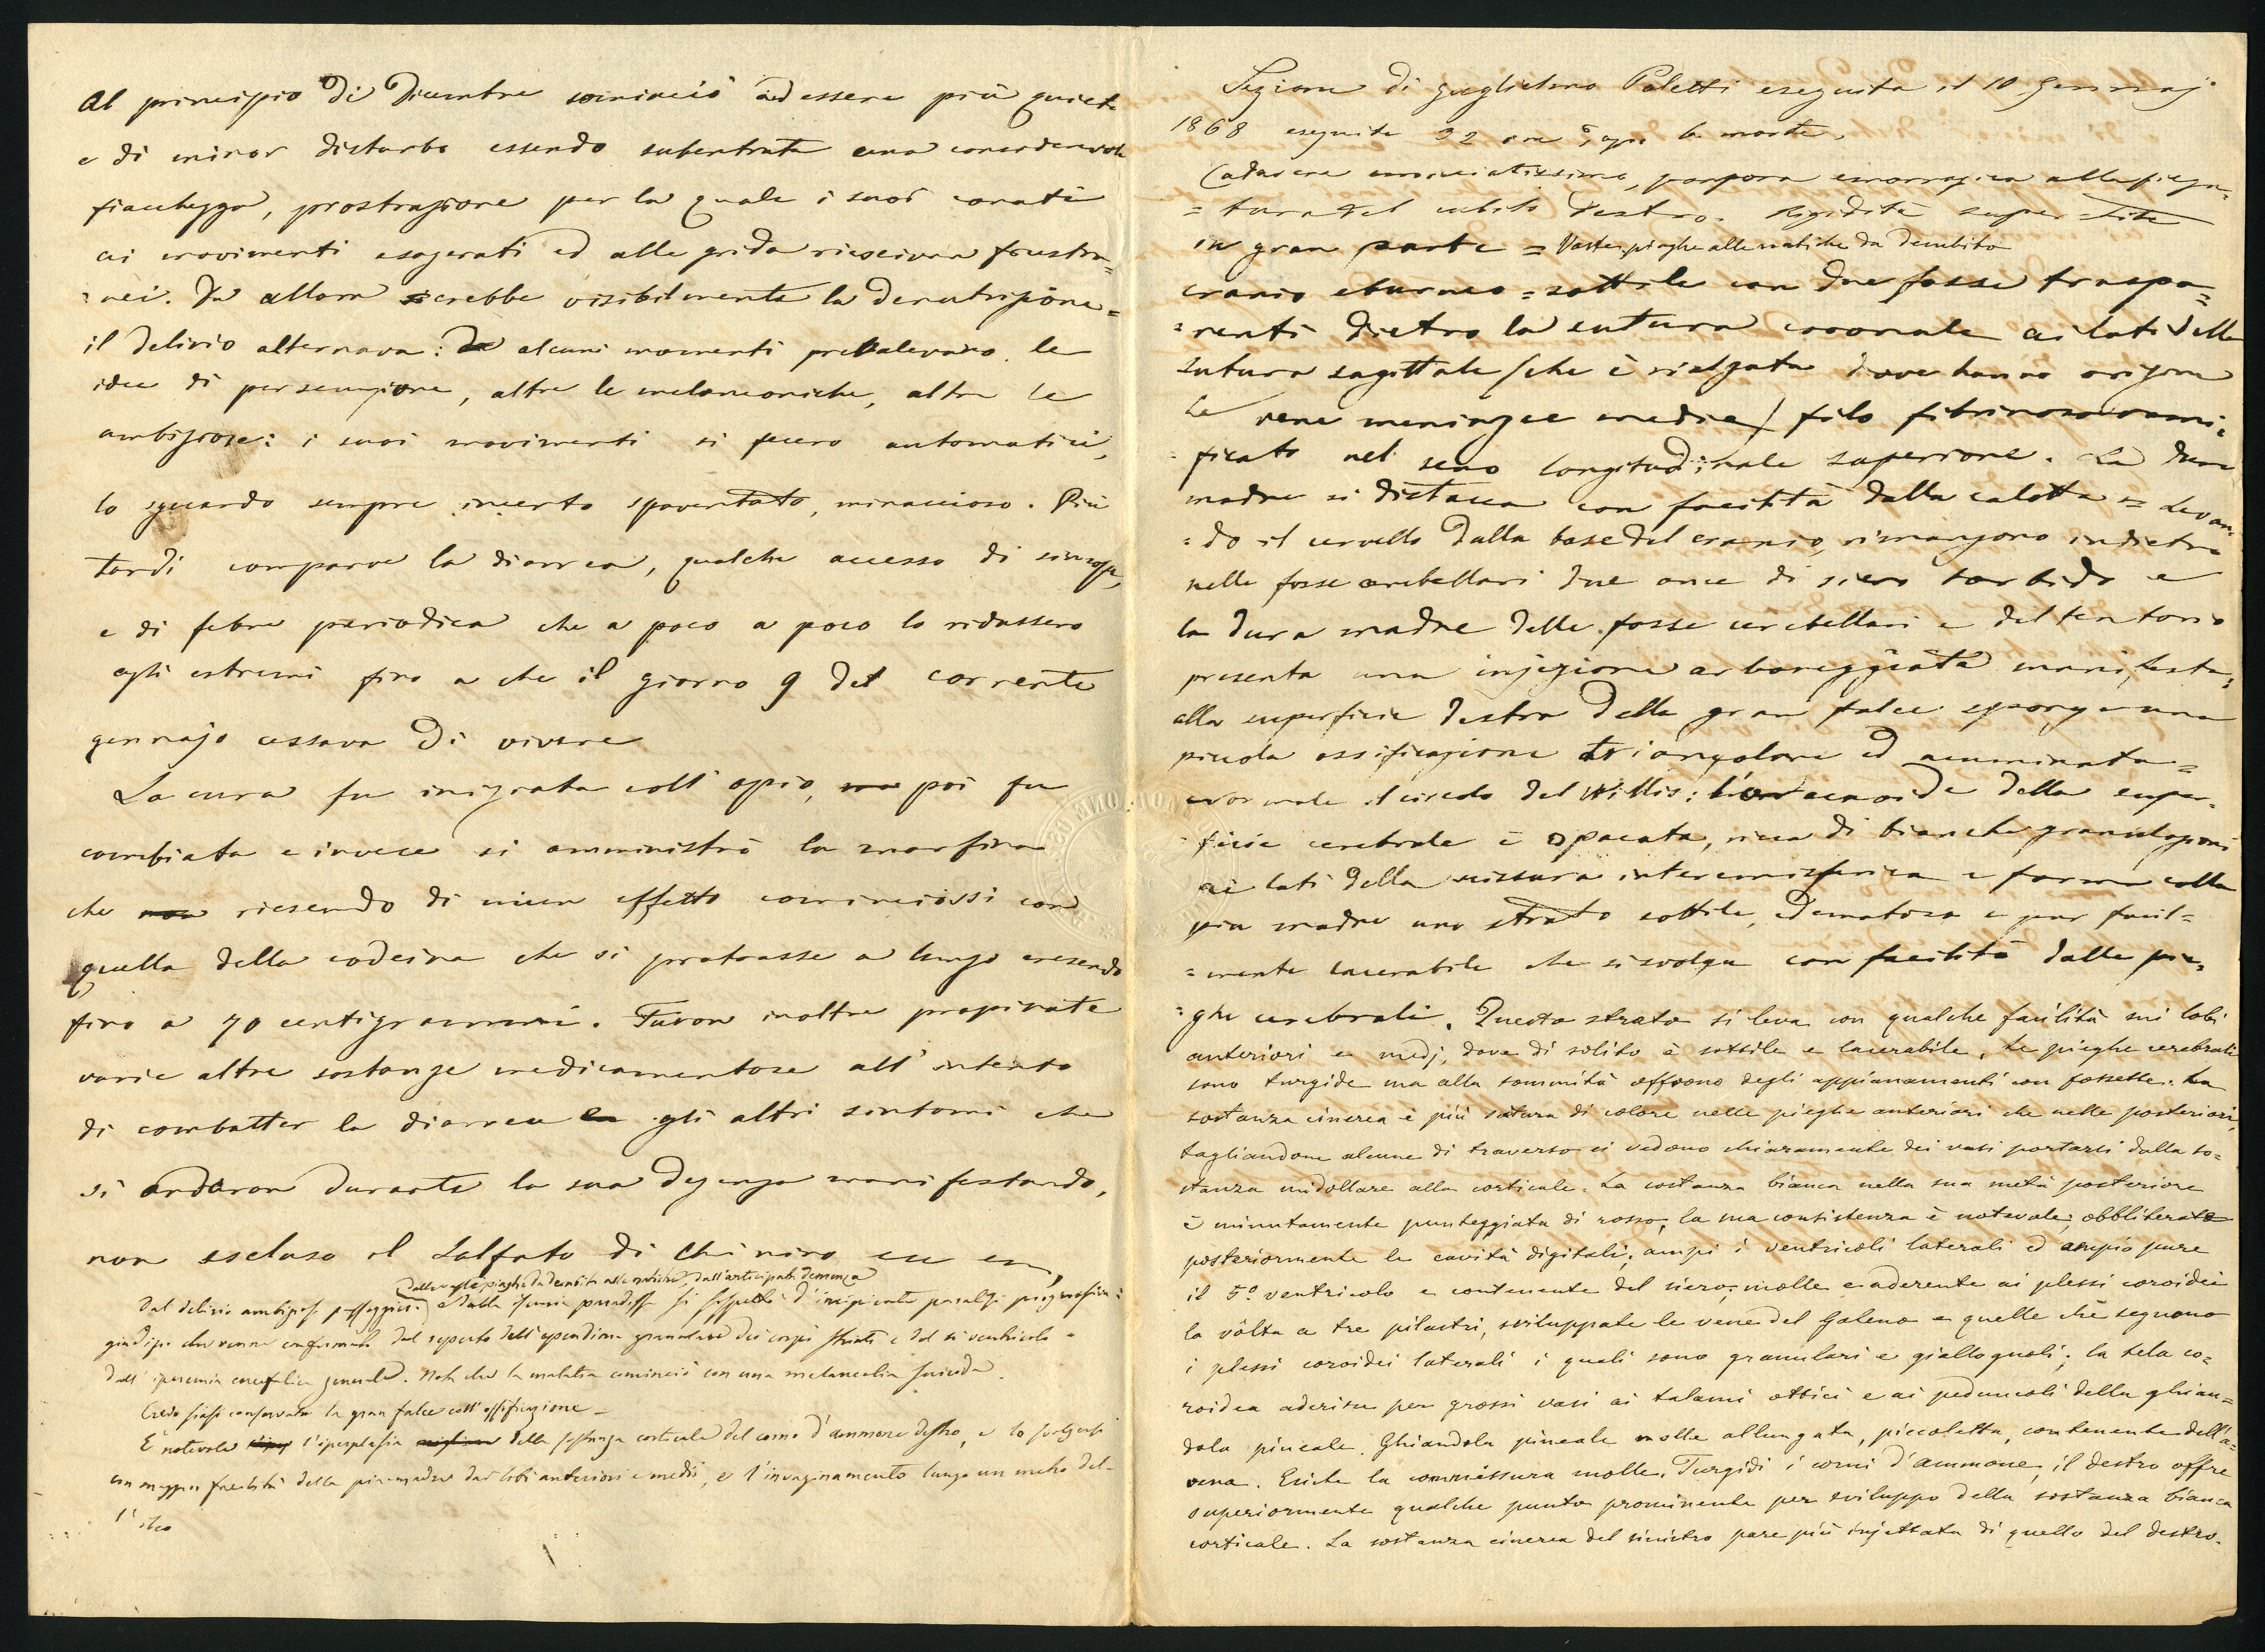 Al principio di Dicembre cominciò ad essere più quieto
e di minor disturbo essendo subentrata una considerevole
fiacchezza, prostrazione per la quale i suoi conati
ai movimenti esagerati ed alle grida riescivan frustra=
=nei. Da allora crebbe visibilmente la denutrizione=
il delirio alternava: alcuni momenti prevalevano le
idee di persecuzione, altre le melanconiche, altre le
ambiziose: i suoi movimenti si fecero automatici,
lo sguardo sempre incerto spaventato, minaccioso. Più
tardi comparve la diarrea, qualche accesso di sincope,
e di febre periodica che a poco a poco lo ridussero
agli estremi fino a che il giorno 9 del corrente
gennajo cessava di vivere
La cura fu iniziata coll' opio, ma poi fu
cambiata e invece si amministrò la morfina
che non riescendo di niun effetto cominciossi con
quella della codeina che si protrasse a lungo crescendo
fino a 70 centigrammi. Furon inoltre propinate
varie altre sostanze medicamentose all' intento
di combatter la diarrea e gli altri sintomi che
si andaron durante la sua degenza manifestando,
non escluso il Solfato di chinino
dalle vaste piaghe da decubito alle natiche, dall'anticipata demenza
Dal delirio ambizioso passeggiero e dalla si sospettò d'incipiente paralisi progressiva:
giudizio che venne confermato dal reperto dell'ependima granulare dei corpi striati e del ventricolo e
dall' iperemia encefalica generale. Noti che la malattia cominciò con una melancolia suicida.
Credo siasi conservata la gran falce coll' ossificazione –
È notevole l'iperplasia della sostanza corticale del corno d'ammone destro, e lo svolgersi
con maggior facilità della pia madre dai lobi anteriori e medii, e l'invaginamento lungo un metro del-
l' ileo
Sezione di Guglielmo Poletti eseguita il 10 Gennajo
1868 eseguita 32 ore dopo la morte.
Cadavere emaciatissimo, porpora emorragica alla piega=
=tura del cubito destro. Rigidità superstite
in gran parte = Vaste piaghe alle natiche da decubito
cranio eburneo = sottile con due fosse traspa=
=renti dietro la sutura coronale ai lati della
sutura sagittale (che è rialzata dove hanno origine
le vene meningee medie) filo fibrinoso rami=
=ficato nel seno longitudinale superiore. La dura
madre si distacca con facilità dalla calotta = Levan=
=do il cervello dalla base del cranio, rimangono indietro
nelle fosse cerebellari due once di siero torbido e
la dura madre delle fosse cerebellari e del tentorio
presenta una injezione arboreggiata manifesta;
alla superficie destra della gran falce sporge una
piccola ossificazione triangolare ed acuminata=
normale il circolo del Willis: l'aracnoide della super=
=ficie cerebrale è opacata, ricca di bianche granulazioni
ai lati della scissura interemisferica e forma colla
pia madre uno strato sottile, edematoso e pur facil=
=mente lacerabile che si svolge con facilità dalle pie=
=ghe cerebrali. Questo strato si leva con qualche facilità nei lobi
anteriori e medj, dove di solito è sottile e lacerabile. Le pieghe cerebrali
sono turgide ma alla sommità offrono degli appianamenti con fossette. La
sostanza cinerea è più satura di colore nelle pieghe anteriori che nelle posteriori,
tagliandone alcune di traverso si vedono chiaramente dei vasi portarsi dalla so=
stanza midollare alla corticale. La sostanza bianca nella sua metà posteriore
è minutamente punteggiata di rosso, la sua consistenza è notevole; obbliterate
posteriormente le cavità digitali; ampi i ventricoli laterali ed ampio pure
il 5º ventricolo e contenente del siero; molle e aderente ai plessi coroidei
la vôlta a tre pilastri, sviluppate le vene del Galeno e quelle che segnano
i plessi coroidei laterali i quali sono granulari e giallognoli; la tela co=
roidea aderisce per grossi vasi ai talami ottici e ai peduncoli della ghian=
dola pineale. Ghiandola pineale molle allungata, piccoletta, contenente dell'a=
rena. Esiste la commessura molle. Turgidi i corni d'ammone, il destro offre
superiormente qualche punto prominente per sviluppo della sostanza bianca
corticale. La sostanza cinerea del sinistro pare più injettata di quello del destro.